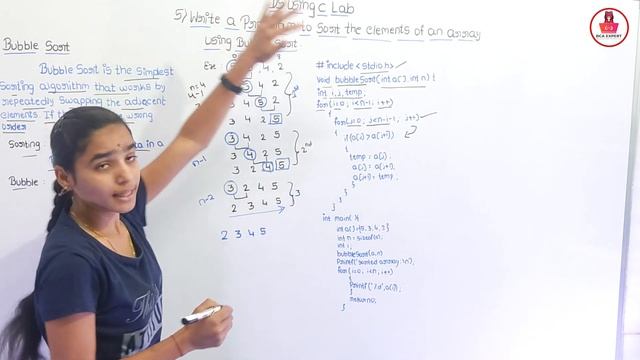 DS Using C Lab
5) Write a Program to Sort the elements of an array
Using Bubble Sort
Bubble Sort
Bubble Sort is the simplest
Sorting algorithm that works by
repeatedly Swapping the adjacent
elements. If the wrong
order
Sorting data in a
Bubble :
Ex:- , 4, 2
n=4
4-1
4 2
3 4 5 2
3 4 2 5
1st
3 4 2 5
3 4 2 5
3 2 4 5
n-1
2nd
3 2 4 5
2 3 4 5
n-2
3
2 3 4 5
#include <stdio.h>
void bubbleSort(int a[], int n) {
int i, j, temp;
for(i=0; i<n-1; i++)
{
for(j=0; j<n-i-1; j++)
{
if(a[j]>a[j+1])
{
temp = a[j];
a[j] = a[j+1];
a[j+1] = temp;
}
}
}
int main() {
int a[]={5, 3, 4, 2}
int n = sizeof(a);
int i;
bubbleSort(a,n)
Printf("sorted array: \n");
for(i=0; i<n; i++)
{
Printf("%d", a[i]);
}
return 0;
}
BCA EXPERT